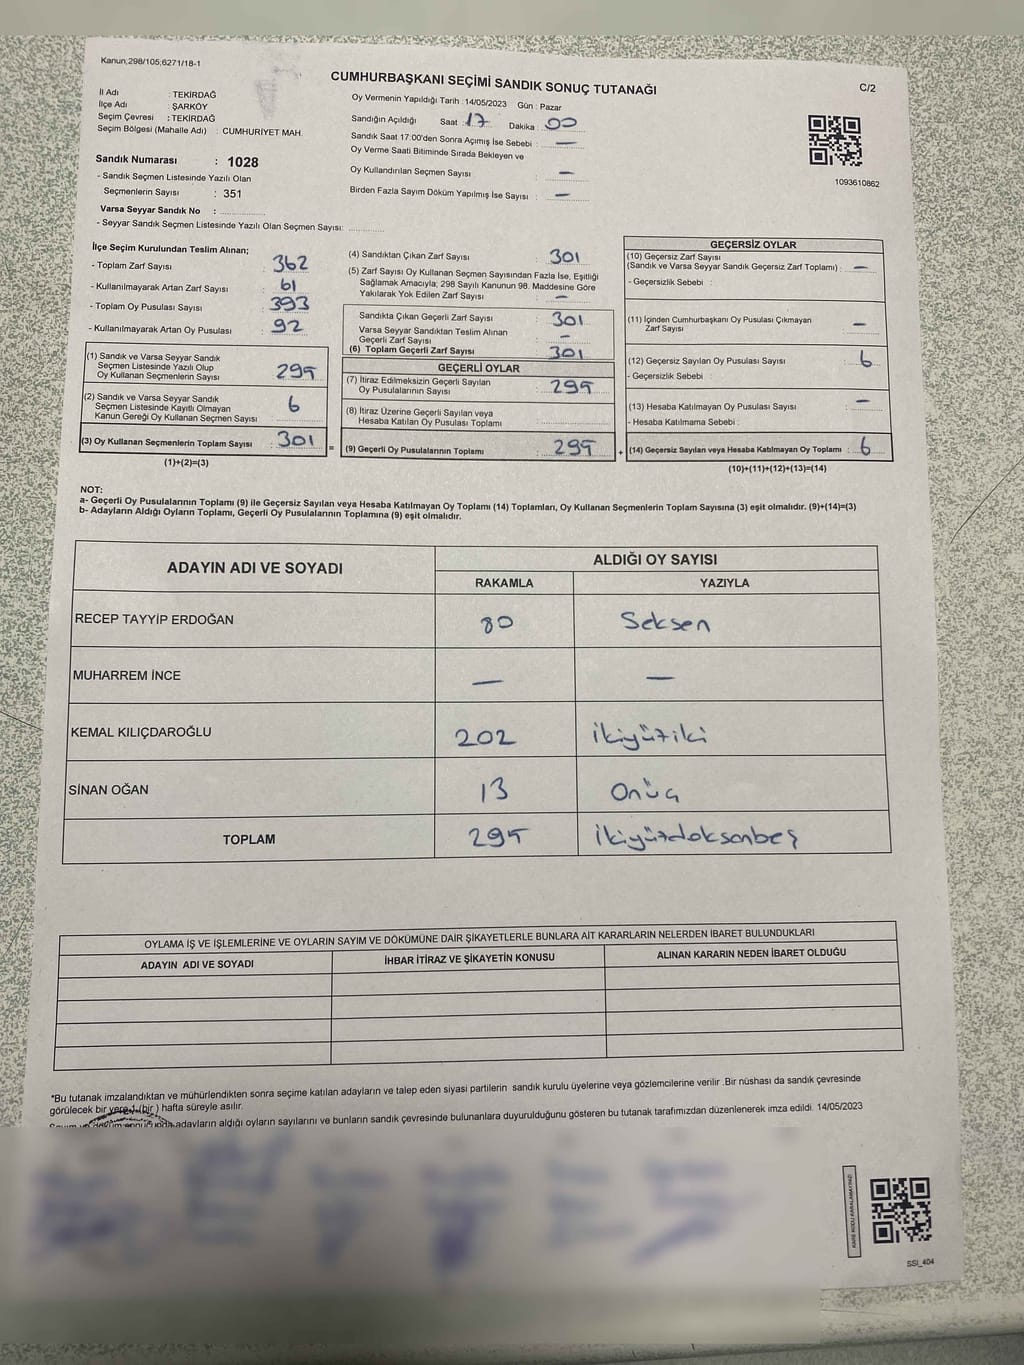 Kanun;298/105;6271/18-1
CUMHURBAŞKANI SEÇİMİ SANDIK SONUÇ TUTANAĞI
C/2
İl Adı : TEKİRDAĞ
İlçe Adı : ŞARKÖY
Seçim Çevresi : TEKİRDAĞ
Seçim Bölgesi (Mahalle Adı) : CUMHURİYET MAH.
Sandık Numarası : 1028
- Sandık Seçmen Listesinde Yazılı Olan
Seçmenlerin Sayısı : 351
Varsa Seyyar Sandık No :
- Seyyar Sandık Seçmen Listesinde Yazılı Olan Seçmen Sayısı:
Oy Vermenin Yapıldığı Tarih :14/05/2023 Gün : Pazar
Sandığın Açıldığı Saat : 17 Dakika : 00
Sandık Saat 17:00'den Sonra Açımış İse Sebebi : —
Oy Verme Saati Bitiminde Sırada Bekleyen ve
Oy Kullandırılan Seçmen Sayısı : —
Birden Fazla Sayım Döküm Yapılmış İse Sayısı : —
1093610862
İlçe Seçim Kurulundan Teslim Alınan;
- Toplam Zarf Sayısı : 362
- Kullanılmayarak Artan Zarf Sayısı : 61
- Toplam Oy Pusulası Sayısı : 393
- Kullanılmayarak Artan Oy Pusulası : 92
(1) Sandık ve Varsa Seyyar Sandık
Seçmen Listesinde Yazılı Olup
Oy Kullanan Seçmenlerin Sayısı : 295
(2) Sandık ve Varsa Seyyar Sandık
Seçmen Listesinde Kayıtlı Olmayan
Kanun Gereği Oy Kullanan Seçmen Sayısı : 6
(3) Oy Kullanan Seçmenlerin Toplam Sayısı : 301
(1)+(2)=(3)
=
(4) Sandıktan Çıkan Zarf Sayısı : 301
(5) Zarf Sayısı Oy Kullanan Seçmen Sayısından Fazla İse, Eşitliği
Sağlamak Amacıyla; 298 Sayılı Kanunun 98. Maddesine Göre
Yakılarak Yok Edilen Zarf Sayısı : —
Sandıkta Çıkan Geçerli Zarf Sayısı : 301
Varsa Seyyar Sandıktan Teslim Alınan
Geçerli Zarf Sayısı : —
(6) Toplam Geçerli Zarf Sayısı : 301
GEÇERLİ OYLAR
(7) İtiraz Edilmeksizin Geçerli Sayılan
Oy Pusulalarının Sayısı : 295
(8) İtiraz Üzerine Geçerli Sayılan veya
Hesaba Katılan Oy Pusulası Toplamı :
(9) Geçerli Oy Pusulalarının Toplamı : 295
+
GEÇERSİZ OYLAR
(10) Geçersiz Zarf Sayısı
(Sandık ve Varsa Seyyar Sandık Geçersiz Zarf Toplamı) : —
- Geçersizlik Sebebi :
(11) İçinden Cumhurbaşkanı Oy Pusulası Çıkmayan
Zarf Sayısı : —
(12) Geçersiz Sayılan Oy Pusulası Sayısı : 6
- Geçersizlik Sebebi :
(13) Hesaba Katılmayan Oy Pusulası Sayısı : —
- Hesaba Katılmama Sebebi :
(14) Geçersiz Sayılan veya Hesaba Katılmayan Oy Toplamı : 6
(10)+(11)+(12)+(13)=(14)
NOT:
a- Geçerli Oy Pusulalarının Toplamı (9) ile Geçersiz Sayılan veya Hesaba Katılmayan Oy Toplamı (14) Toplamları, Oy Kullanan Seçmenlerin Toplam Sayısına (3) eşit olmalıdır. (9)+(14)=(3)
b- Adayların Aldığı Oyların Toplamı, Geçerli Oy Pusulalarının Toplamına (9) eşit olmalıdır.
ADAYIN ADI VE SOYADI
ALDIĞI OY SAYISI
RAKAMLA YAZIYLA
RECEP TAYYİP ERDOĞAN 80 Seksen
MUHARREM İNCE — —
KEMAL KILIÇDAROĞLU 202 İkiyüziki
SİNAN OĞAN 13 Onüç
TOPLAM 295 İkiyüzdoksanbeş
OYLAMA İŞ VE İŞLEMLERİNE VE OYLARIN SAYIM VE DÖKÜMÜNE DAİR ŞİKAYETLERLE BUNLARA AİT KARARLARIN NELERDEN İBARET BULUNDUKLARI
ADAYIN ADI VE SOYADI İHBAR İTİRAZ VE ŞİKAYETİN KONUSU ALINAN KARARIN NEDEN İBARET OLDUĞU
*Bu tutanak imzalandıktan ve mühürlendikten sonra seçime katılan adayların ve talep eden siyasi partilerin sandık kurulu üyelerine veya gözlemcilerine verilir .Bir nüshası da sandık çevresinde
görülecek bir yere 1 (bir ) hafta süreyle asılır.
adayların aldığı oyların sayılarını ve bunların sandık çevresinde bulunanlara duyurulduğunu gösteren bu tutanak tarafımızdan düzenlenerek imza edildi. 14/05/2023
KARE KODU KARALAMAYINIZ!
SSI_404